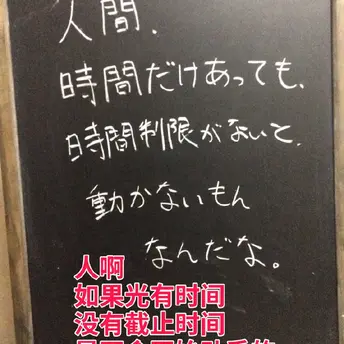 人間、
時間だけあっても、
時間制限がないと、
動かないもん
なんだな。
人啊
如果光有时间
没有截止时间